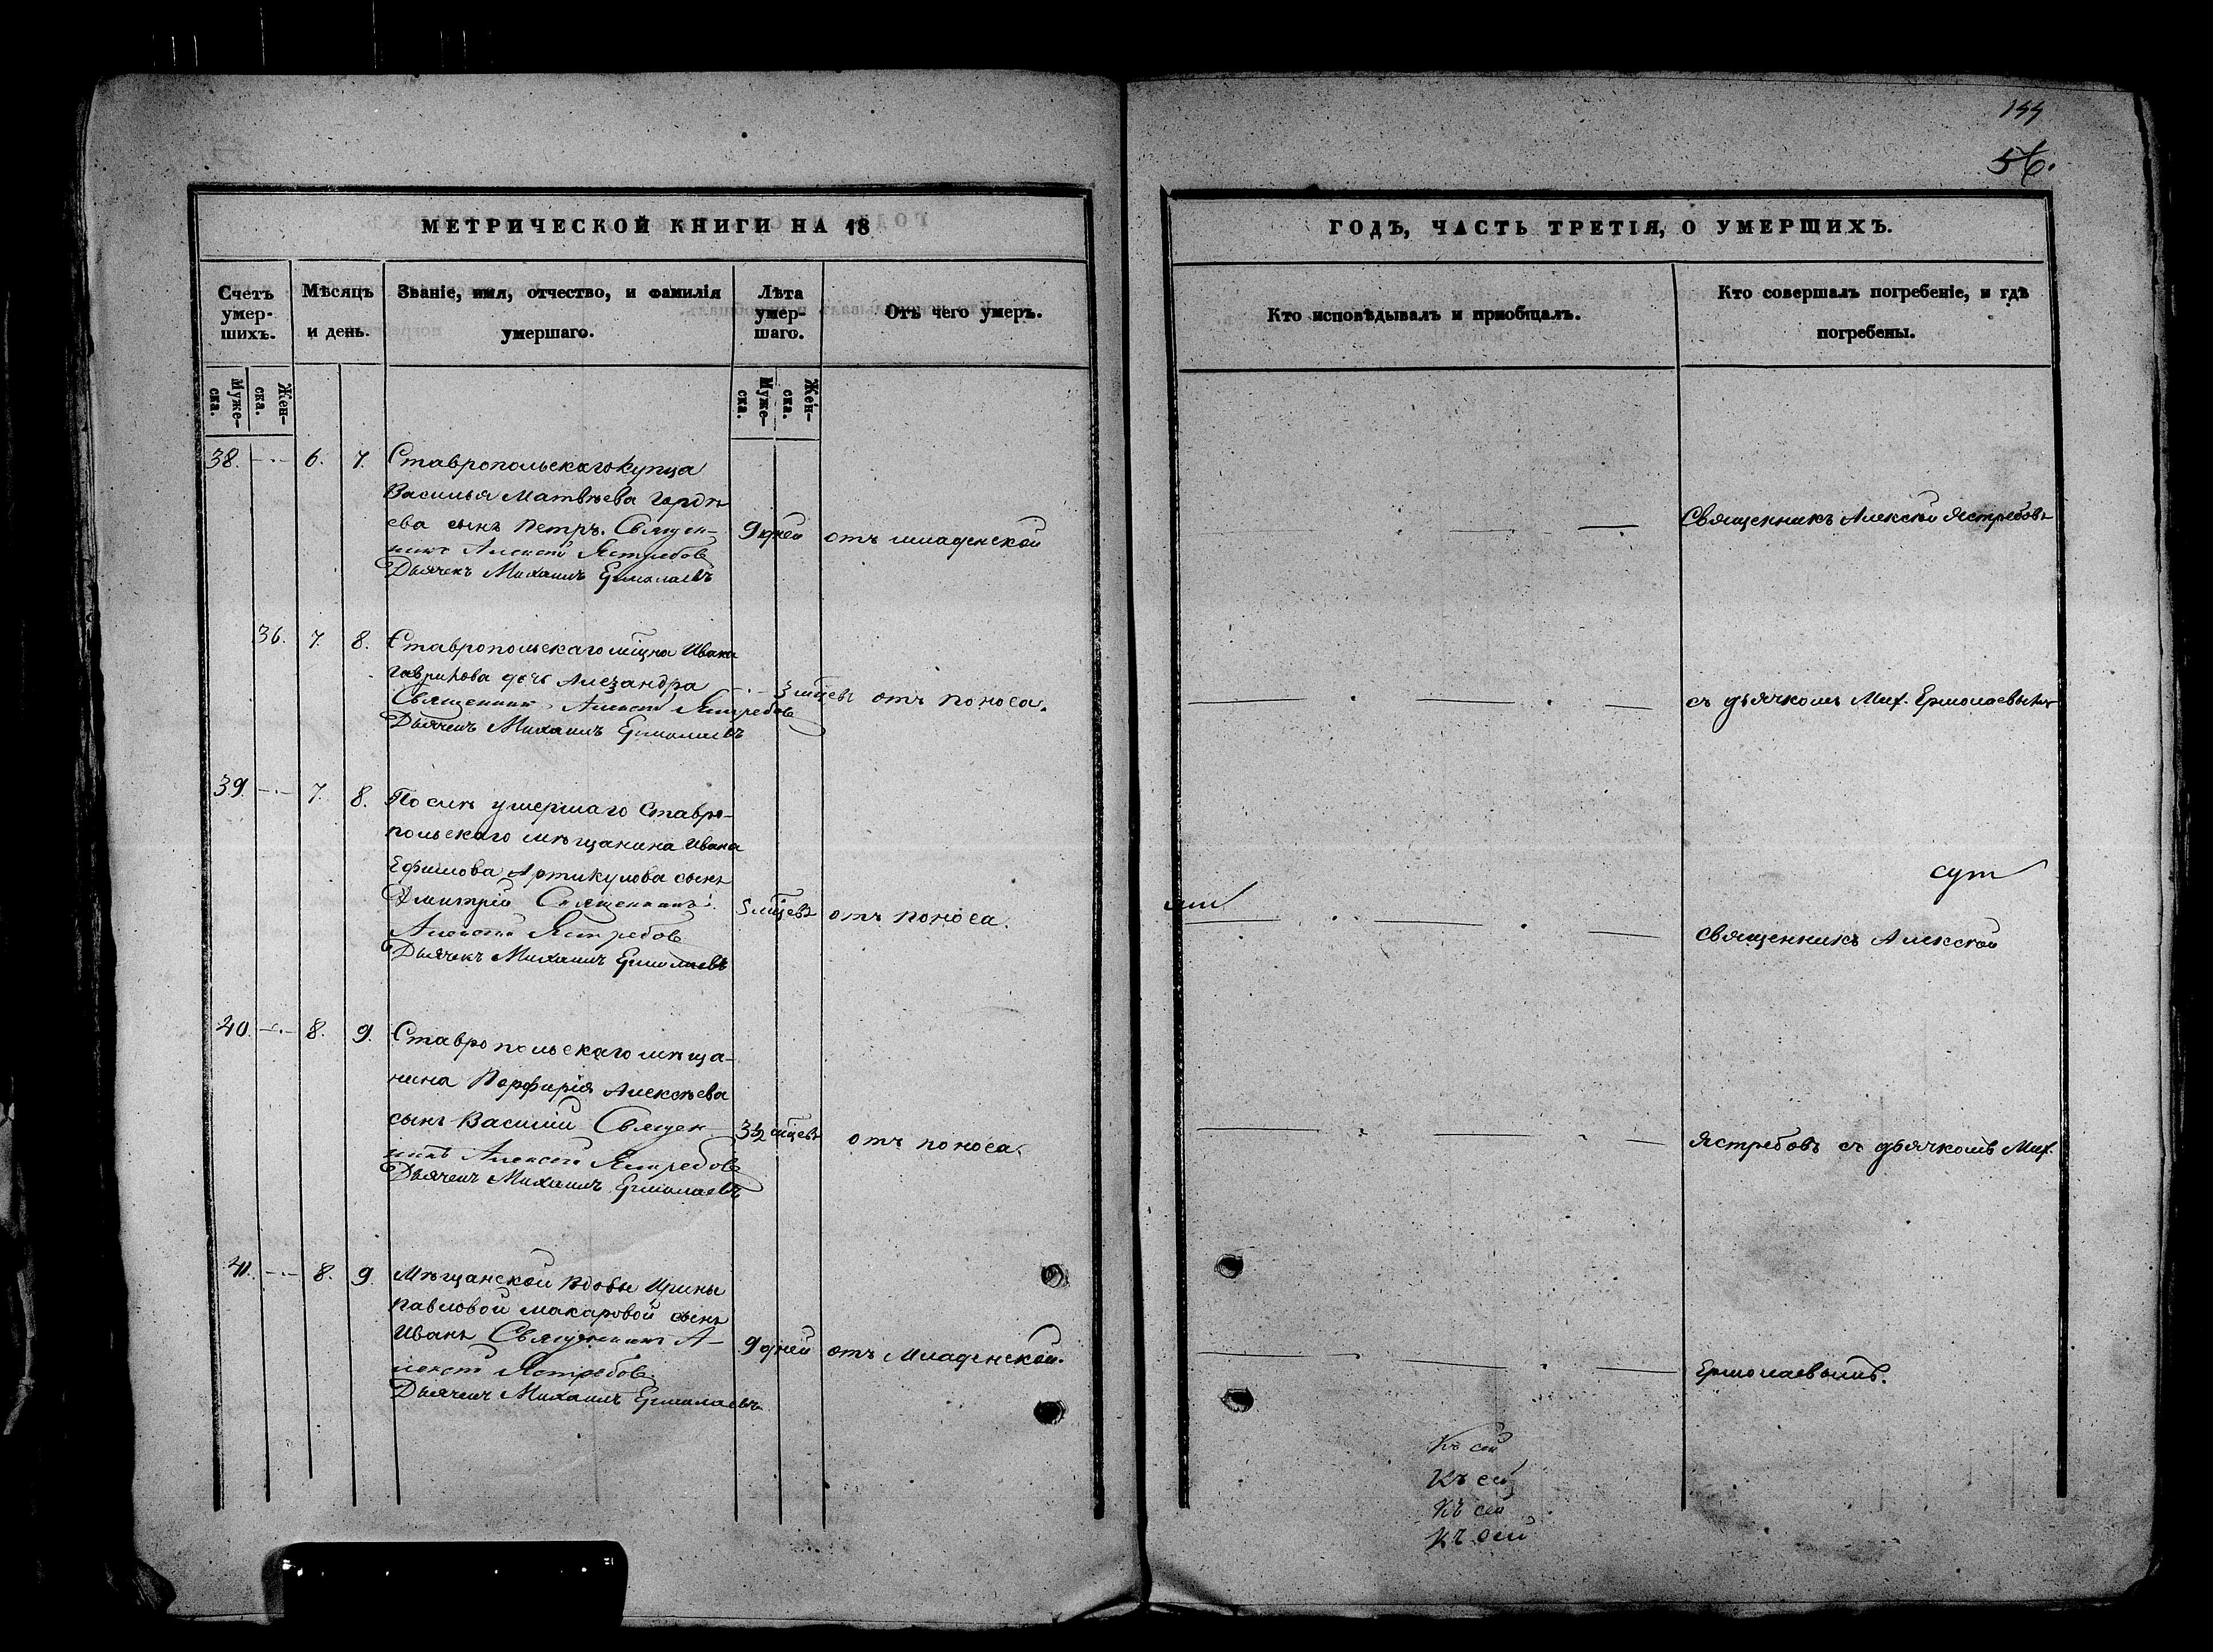 144
56.
МЕТРИЧЕСКОЙ КНИГИ НА 18
ГОДЪ, ЧАСТЬ ТРЕТІЯ, О УМЕРШИХЪ.
Счетъ умер-шихъ.
Муже-ска.
Жен-ска.
Мѣсяцъ и день.
Званіе, имя, отчество, и фамилія умершаго.
Лѣта умер-шаго.
Муже-ска.
Жен-ска.
Отъ чего умеръ.
Кто исповѣдывалъ и пріобщалъ.
Кто совершалъ погребеніе, и гдѣ погребены.
38. 6. 7. Ставропольскаго купца
Василья Матвѣева Гордѣ
ева сынъ Петръ. Священ-
никъ Алексѣй Ястребовъ
Дьячекъ Михаилъ Ермолаевъ
9 дней отъ младенской
Священникъ Алексѣй Ястребовъ
36. 7. 8. Ставропольскаго мѣщна Ивана
Гаврилова дочь Алезандра
Священникъ Алексѣй Ястребовъ
Дьячекъ Михаилъ Ермолаевъ
3 мѣцевъ отъ поноса.
съ дьячкомъ Мих. Ермолаевымъ
39. 7. 8. Послѣ умершаго Ставро-
польскаго мѣщанина Ивана
Ефимова Артикулова сынъ
Дмитрій Священникъ
Алексѣй Ястребовъ
Дьячекъ Михаилъ Ермолаевъ
5 мѣцевъ отъ поноса.
сут
священникъ Алексѣй
40. 8. 9. Ставропольскаго мѣща-
нина Порфирія Алексѣева
сынъ Василій Священ
никъ Алексѣй Ястребовъ
Дьячекъ Михаилъ Ермолаевъ
3½ мѣцевъ отъ поноса.
Ястребовъ съ дьячкомъ Мих.
41. 8. 9. Мѣщанской вдовы Ирины
Павловой Макаровой сынъ
Иванъ Священникъ А-
лексѣй Ястребовъ.
Дьячекъ Михаилъ Ермолаевъ
9 дней отъ Младенской.
Ермолаевымъ.
Къ сей
Къ сей
Къ сей
Къ сей